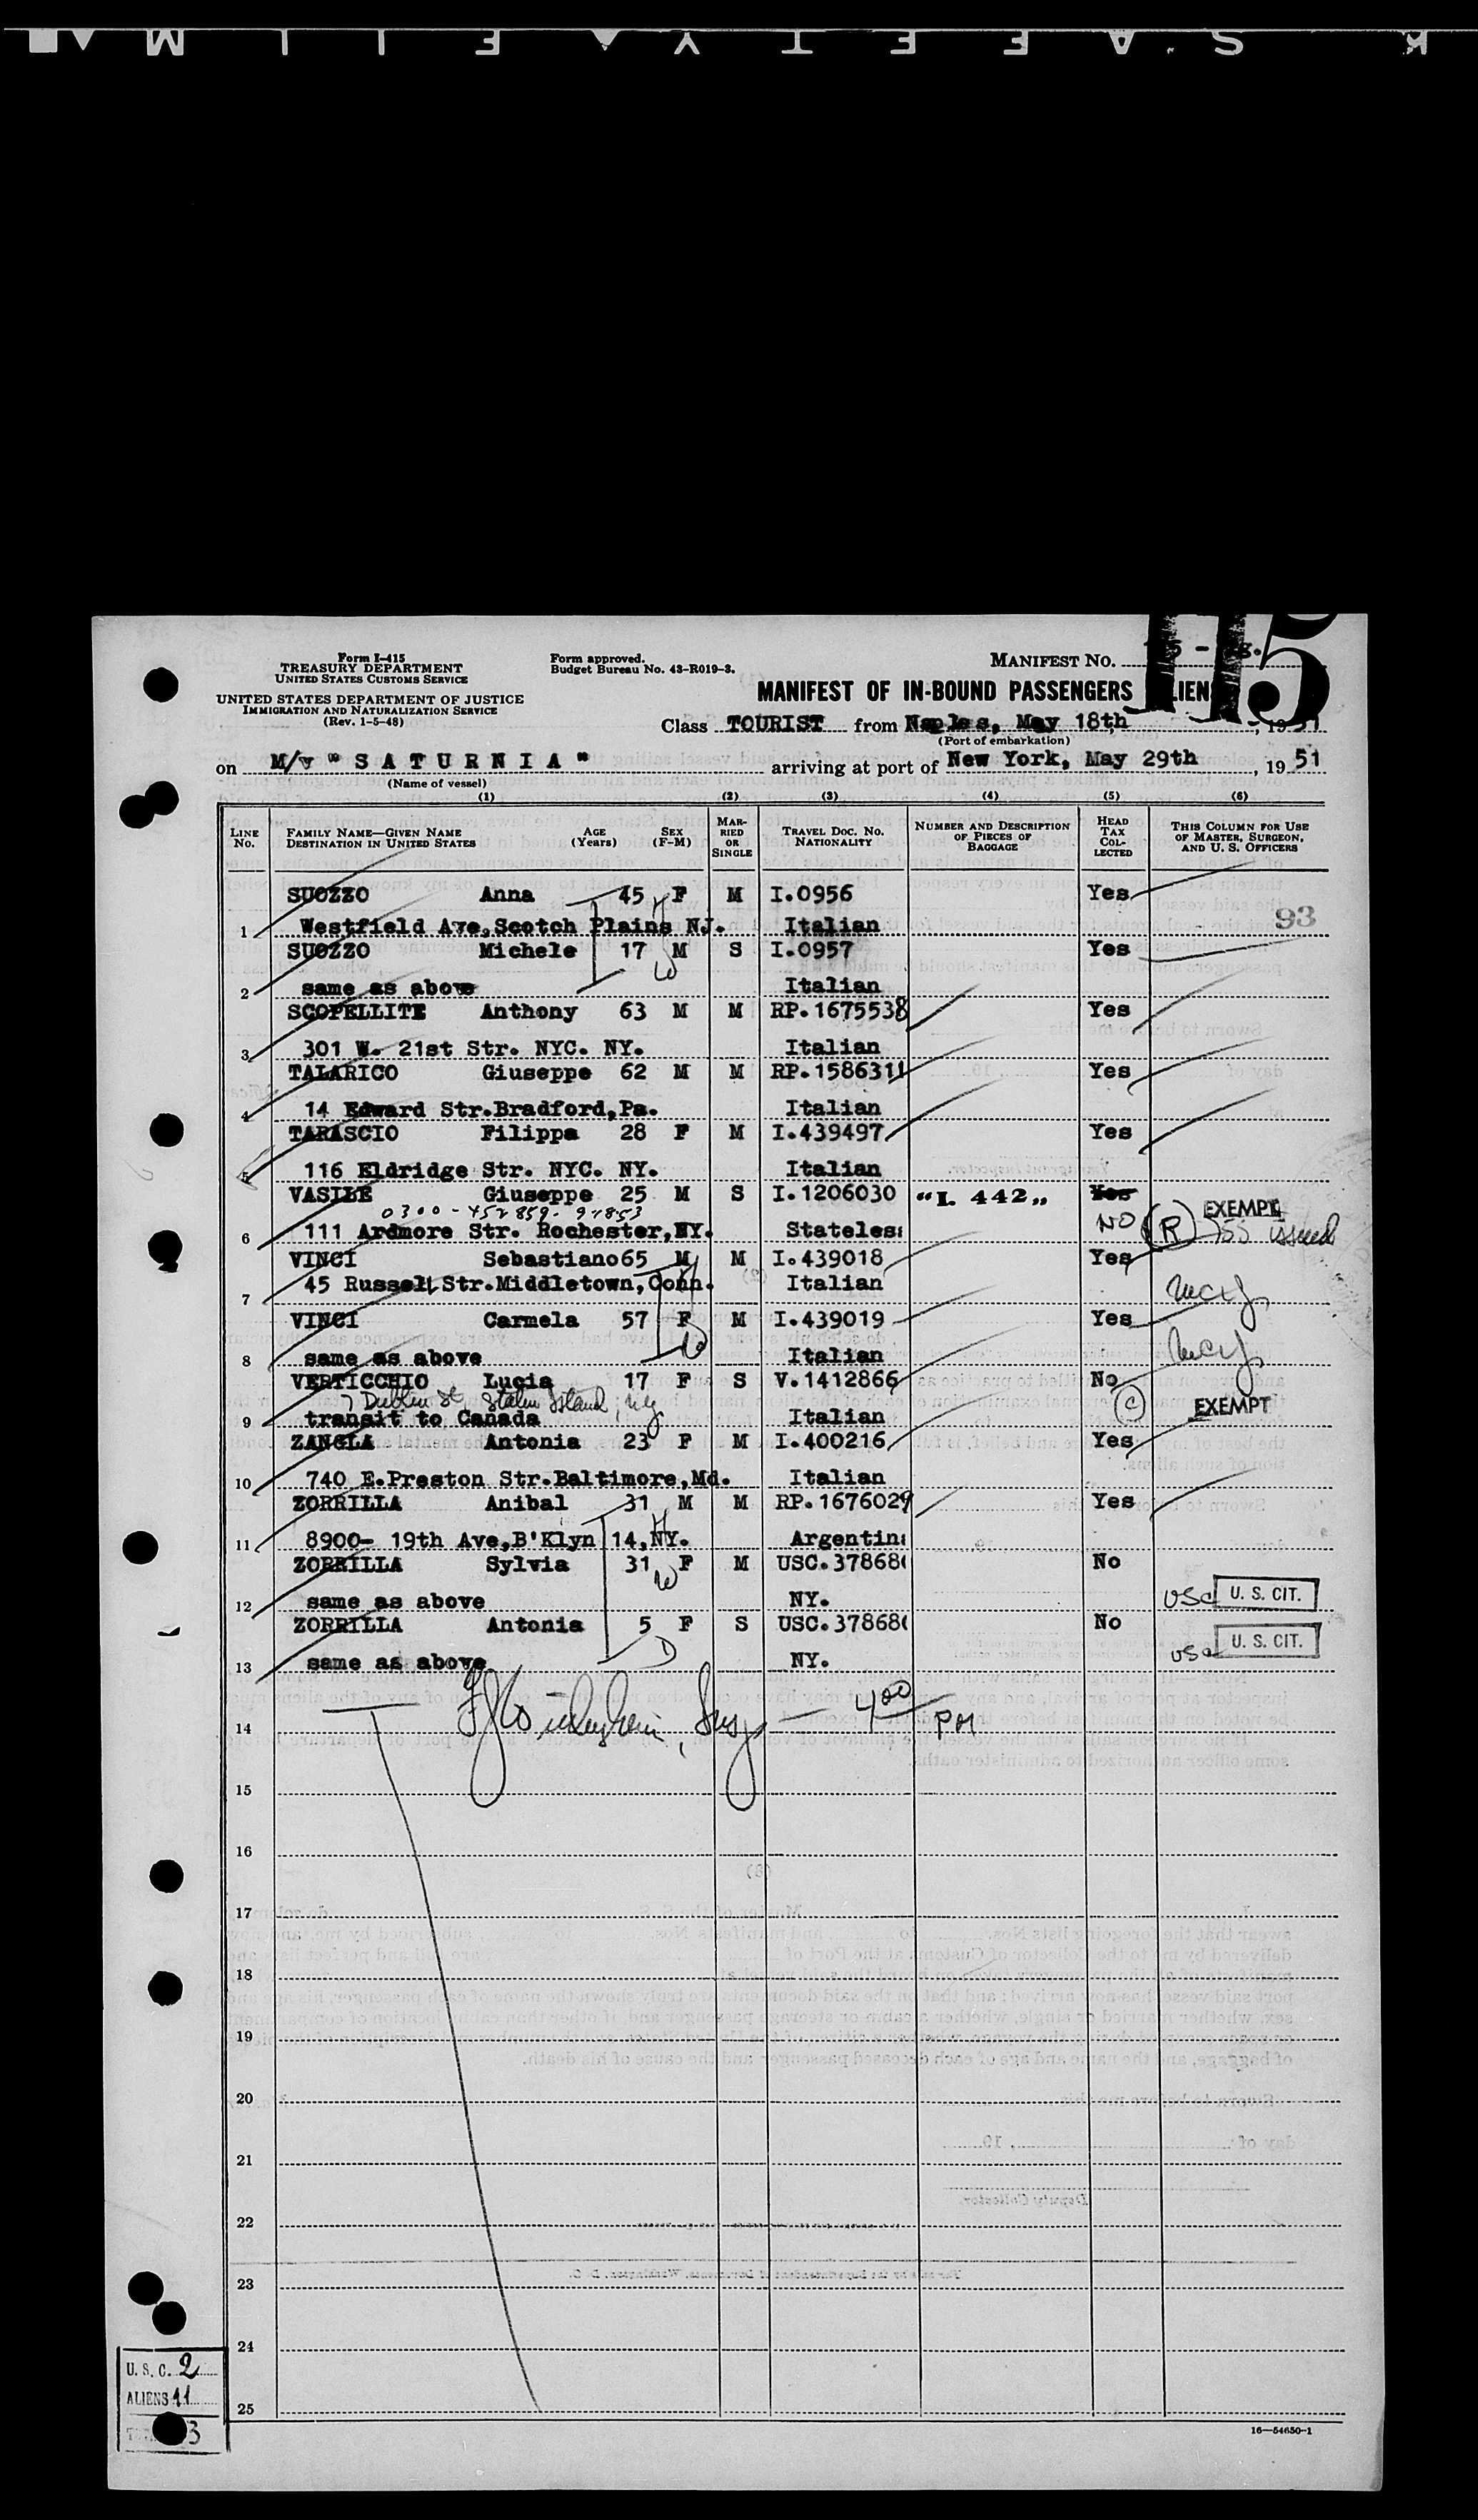 K SAFETY FILM
115
Form I-415
TREASURY DEPARTMENT
UNITED STATES CUSTOMS SERVICE
UNITED STATES DEPARTMENT OF JUSTICE
IMMIGRATION AND NATURALIZATION SERVICE
(Rev. 1-5-48)
Form approved.
Budget Bureau No. 43-R019-3.
MANIFEST NO.
MANIFEST OF IN-BOUND PASSENGERS
Class TOURIST from Naples, May 18th, 1951
(Port of embarkation)
on M/v "SATURNIA" arriving at port of New York, May 29th, 1951
(Name of vessel)
(1) (2) (3) (4) (5) (6)
LINE NO. FAMILY NAME—GIVEN NAME DESTINATION IN UNITED STATES AGE (Years) SEX (F-M) MARRIED OR SINGLE TRAVEL DOC. NO. NATIONALITY NUMBER AND DESCRIPTION OF PIECES OF BAGGAGE HEAD TAX COLLECTED THIS COLUMN FOR USE OF MASTER, SURGEON, AND U. S. OFFICERS
SUOZZO Anna 45 F M I.0956 Yes
1 Westfield Ave, Scotch Plains NJ. Italian 93
SUOZZO Michele 17 M S I.0957 Yes
2 same as above Italian
SCOPELLITE Anthony 63 M M RP.1675538 Yes
3 301 W. 21st Str. NYC. NY. Italian
TALARICO Giuseppe 62 M M RP.1586311 Yes
4 14 Edward Str.Bradford,Pa. Italian
TARASCIO Filippa 28 F M I.439497 Yes
5 116 Eldridge Str. NYC. NY. Italian
VASILE Giuseppe 25 M S I.1206030 "I. 442" Yes EXEMPT
0300-452859-92853 NO (R) issued
6 111 Ardmore Str. Rochester,NY. Stateles
VINCI Sebastiano 65 M M I.439018 Yes
7 45 Russell Str.Middletown,Conn. Italian
VINCI Carmela 57 F M I.439019 Yes
8 same as above Italian
VERTICCHIO Lucia 17 F S V.1412866 No
7 Dublin St, Staten Island, NY (C) EXEMPT
9 transit to Canada Italian
ZANGLA Antonia 23 F M I.400216 Yes
10 740 E.Preston Str.Baltimore,Md. Italian
ZORRILLA Anibal 31 M M RP.1676029 Yes
11 8900- 19th Ave,B'Klyn 14,NY. Argentin
ZORRILLA Sylvia 31 F M USC.37868 No
12 same as above NY. USC U. S. CIT.
ZORRILLA Antonia 5 F S USC.37868 No
13 same as above NY. USC U. S. CIT.
14 4 00 PM
15
16
17
18
19
20
21
22
23
24
25
U. S. C. 2
ALIENS 11
3
16—54650-1